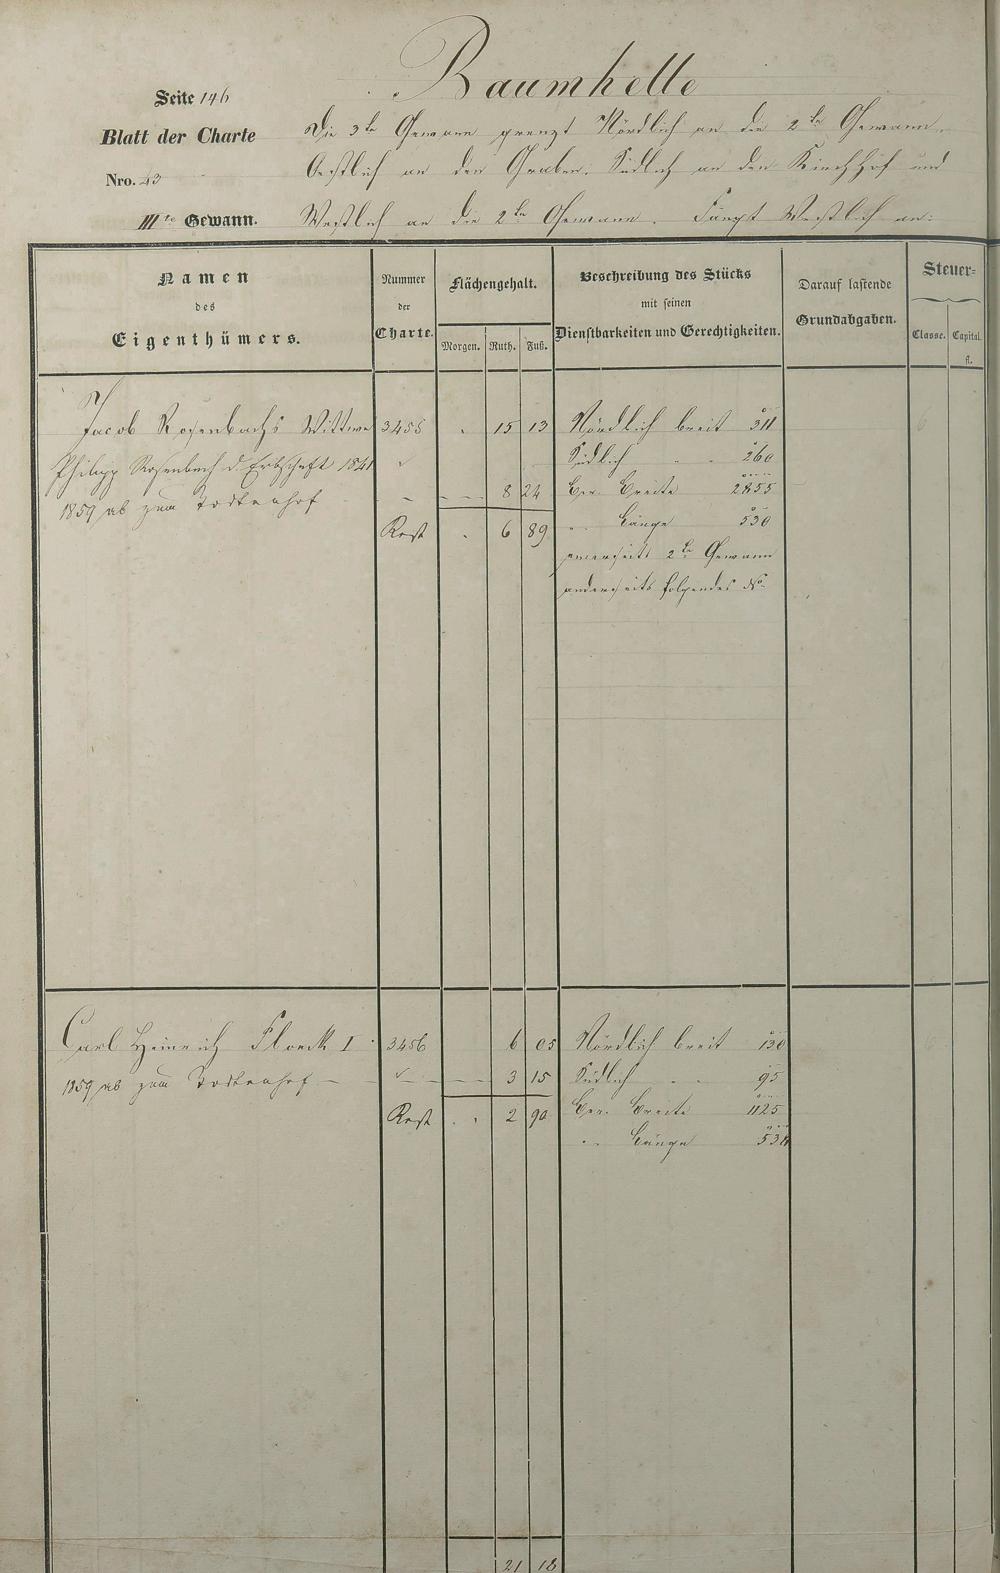 Baumhelle
Seite 146
Blatt der Charte
Nro. 23
IIIte Gewann.
Die 3te Gewann grenzt Nördlich an die 2te Gewann,
Oestlich an den Graben. Südlich an den Kirchhof und
Westlich an die 2te Gewann. Fängt Westlich an:
Namen
des
Eigenthümers.
Nummer
der
Charte.
Flächengehalt.
Morgen. Ruth. Fuß.
Beschreibung des Stücks
mit seinen
Dienstbarkeiten und Gerechtigkeiten.
Darauf lastende
Grundabgaben.
Steuer=
Classe. Capital.
fl.
Jacob Rosenbachs Wittwe 3455 . 15 13 Nördlich breit 311
Philipp Rosenbach d. Erbschaft 1841 Südlich " " 260
1859 ab zum Todtenhof 8 24 Ber. Breite 2855
Rest . 6 89 " Länge 530
einerseits 2te Gewann
anderseits folgendes No.
Carl Heinrich Floeck I 3456 6 05 Nördlich breit 130
1859 ab zum Todtenhof 3 15 Südlich " " 95
Rest . . 2 90 Ber. Breite 1125
" Länge 538
21 18